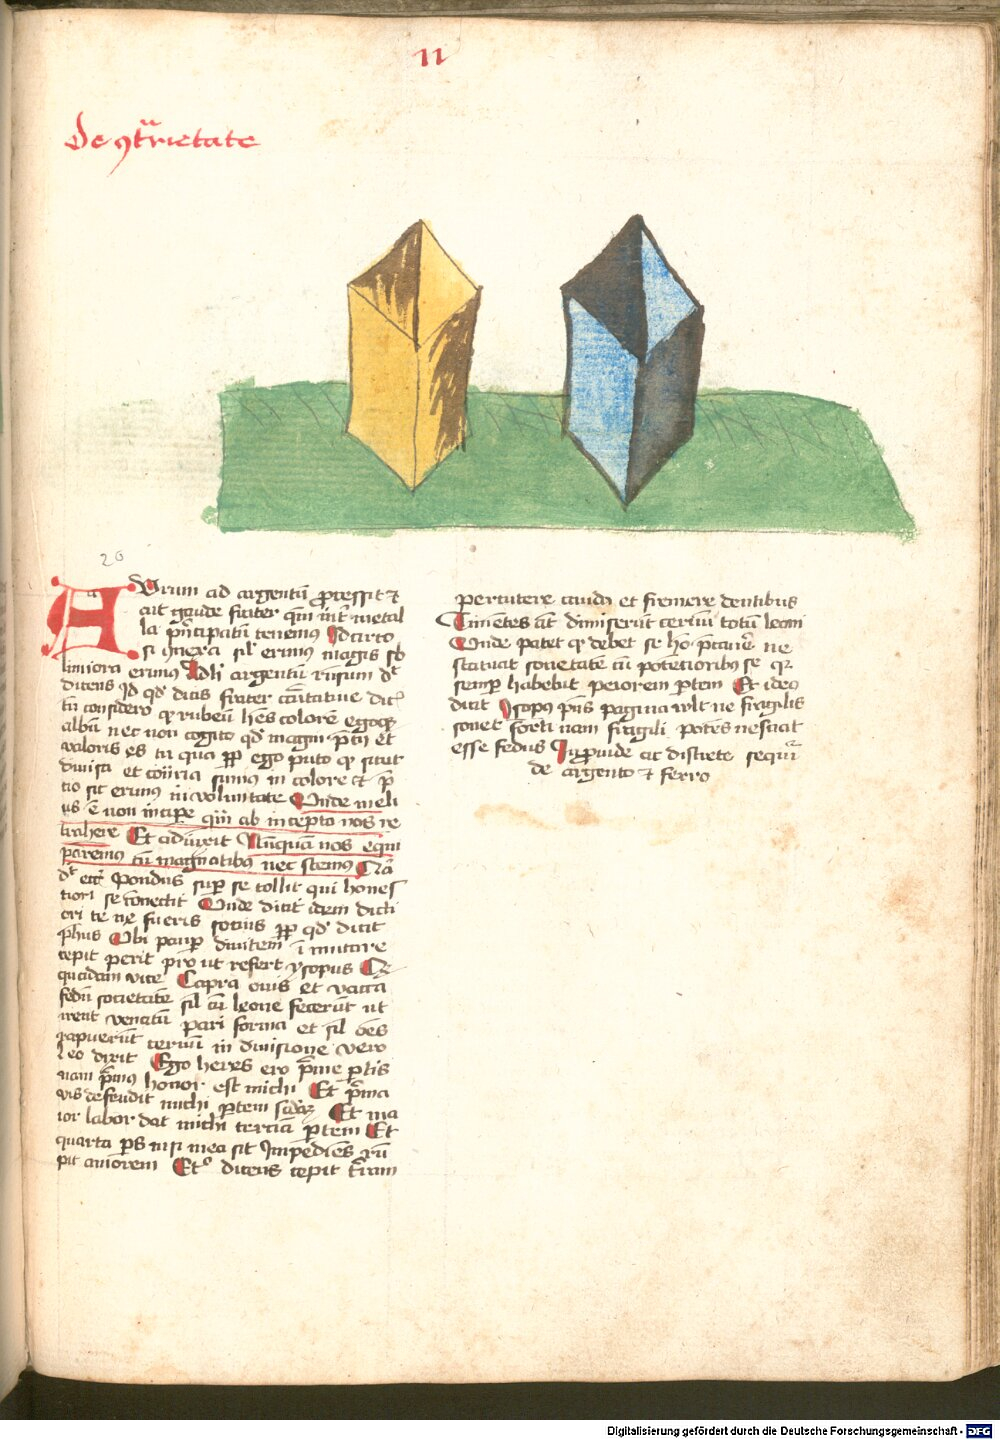 11
De 9trarietate
20
AUrum ad argentū processit ⁊
ait gaude frater qm̄ int̄ metal
la pn̄cipatū tenemus Idcirco
si 9nexa sil' erimus magis sb
limiora erimus Adh' argentū rusum d't
dicens id qd' dicis frater caritatiue dic'
tū considero qr rubeū hēs colorē egoqꝫ
albū nec non cogito qd' magni p̄tij et
valoris es tu quā pp ego puto qr sicut
diuisi et cōtrria sumus in colore ⁊ p̄
tio sic erimus in volūtate Unde meli
us ē non incipe qm̄ ab incepto nos re
trahere Et adiunxit Nunquā nos equi
paremus cū magnatibus nec stemus Nā
d't ecc' Pondus sup se tollit qui hones
tiori se cōnectit Unde dicit idem dicti
ori te ne fueris socius pp qd' dicit
ph'us Ubi paup diuitem ī imitare
cepit perit pro ut refert ysopus Qr
quādam vice Capra ouis et vacca
fedū societatē sil' cū leone fecerūt ut
irent venatū pari forma et sil' oēs
rapuerūt ceruū in diuisione vero
Leo dixit Ego heres ero p̄me ptis
nam p̄mus honor est michi Et p̄ma
vis defendit michi ptem scdaꝫ Et ma
ior labor dat michi terciā ptem Et
quarta ps nisi mea sit Impediēs rū
pit amorem Et' dicens cepit t'ram
percutere cauda et fremere dentibus
Timētes aūt dimiserūt ceruū totū leoni
Unde patet qr debet se ho' p̄cauē ne
statuat societatē cū potecioribus se qr
semp habebit peiorem ptem Et ideo
dicit Isopus p̄ns pagina vlt ne fragilis
sonet forti nam fragili potēs nesciat
esse fedus In puide ac discrete sequr̄
de argento ⁊ ferro
Digitalisierung gefördert durch die Deutsche Forschungsgemeinschaft - DFG